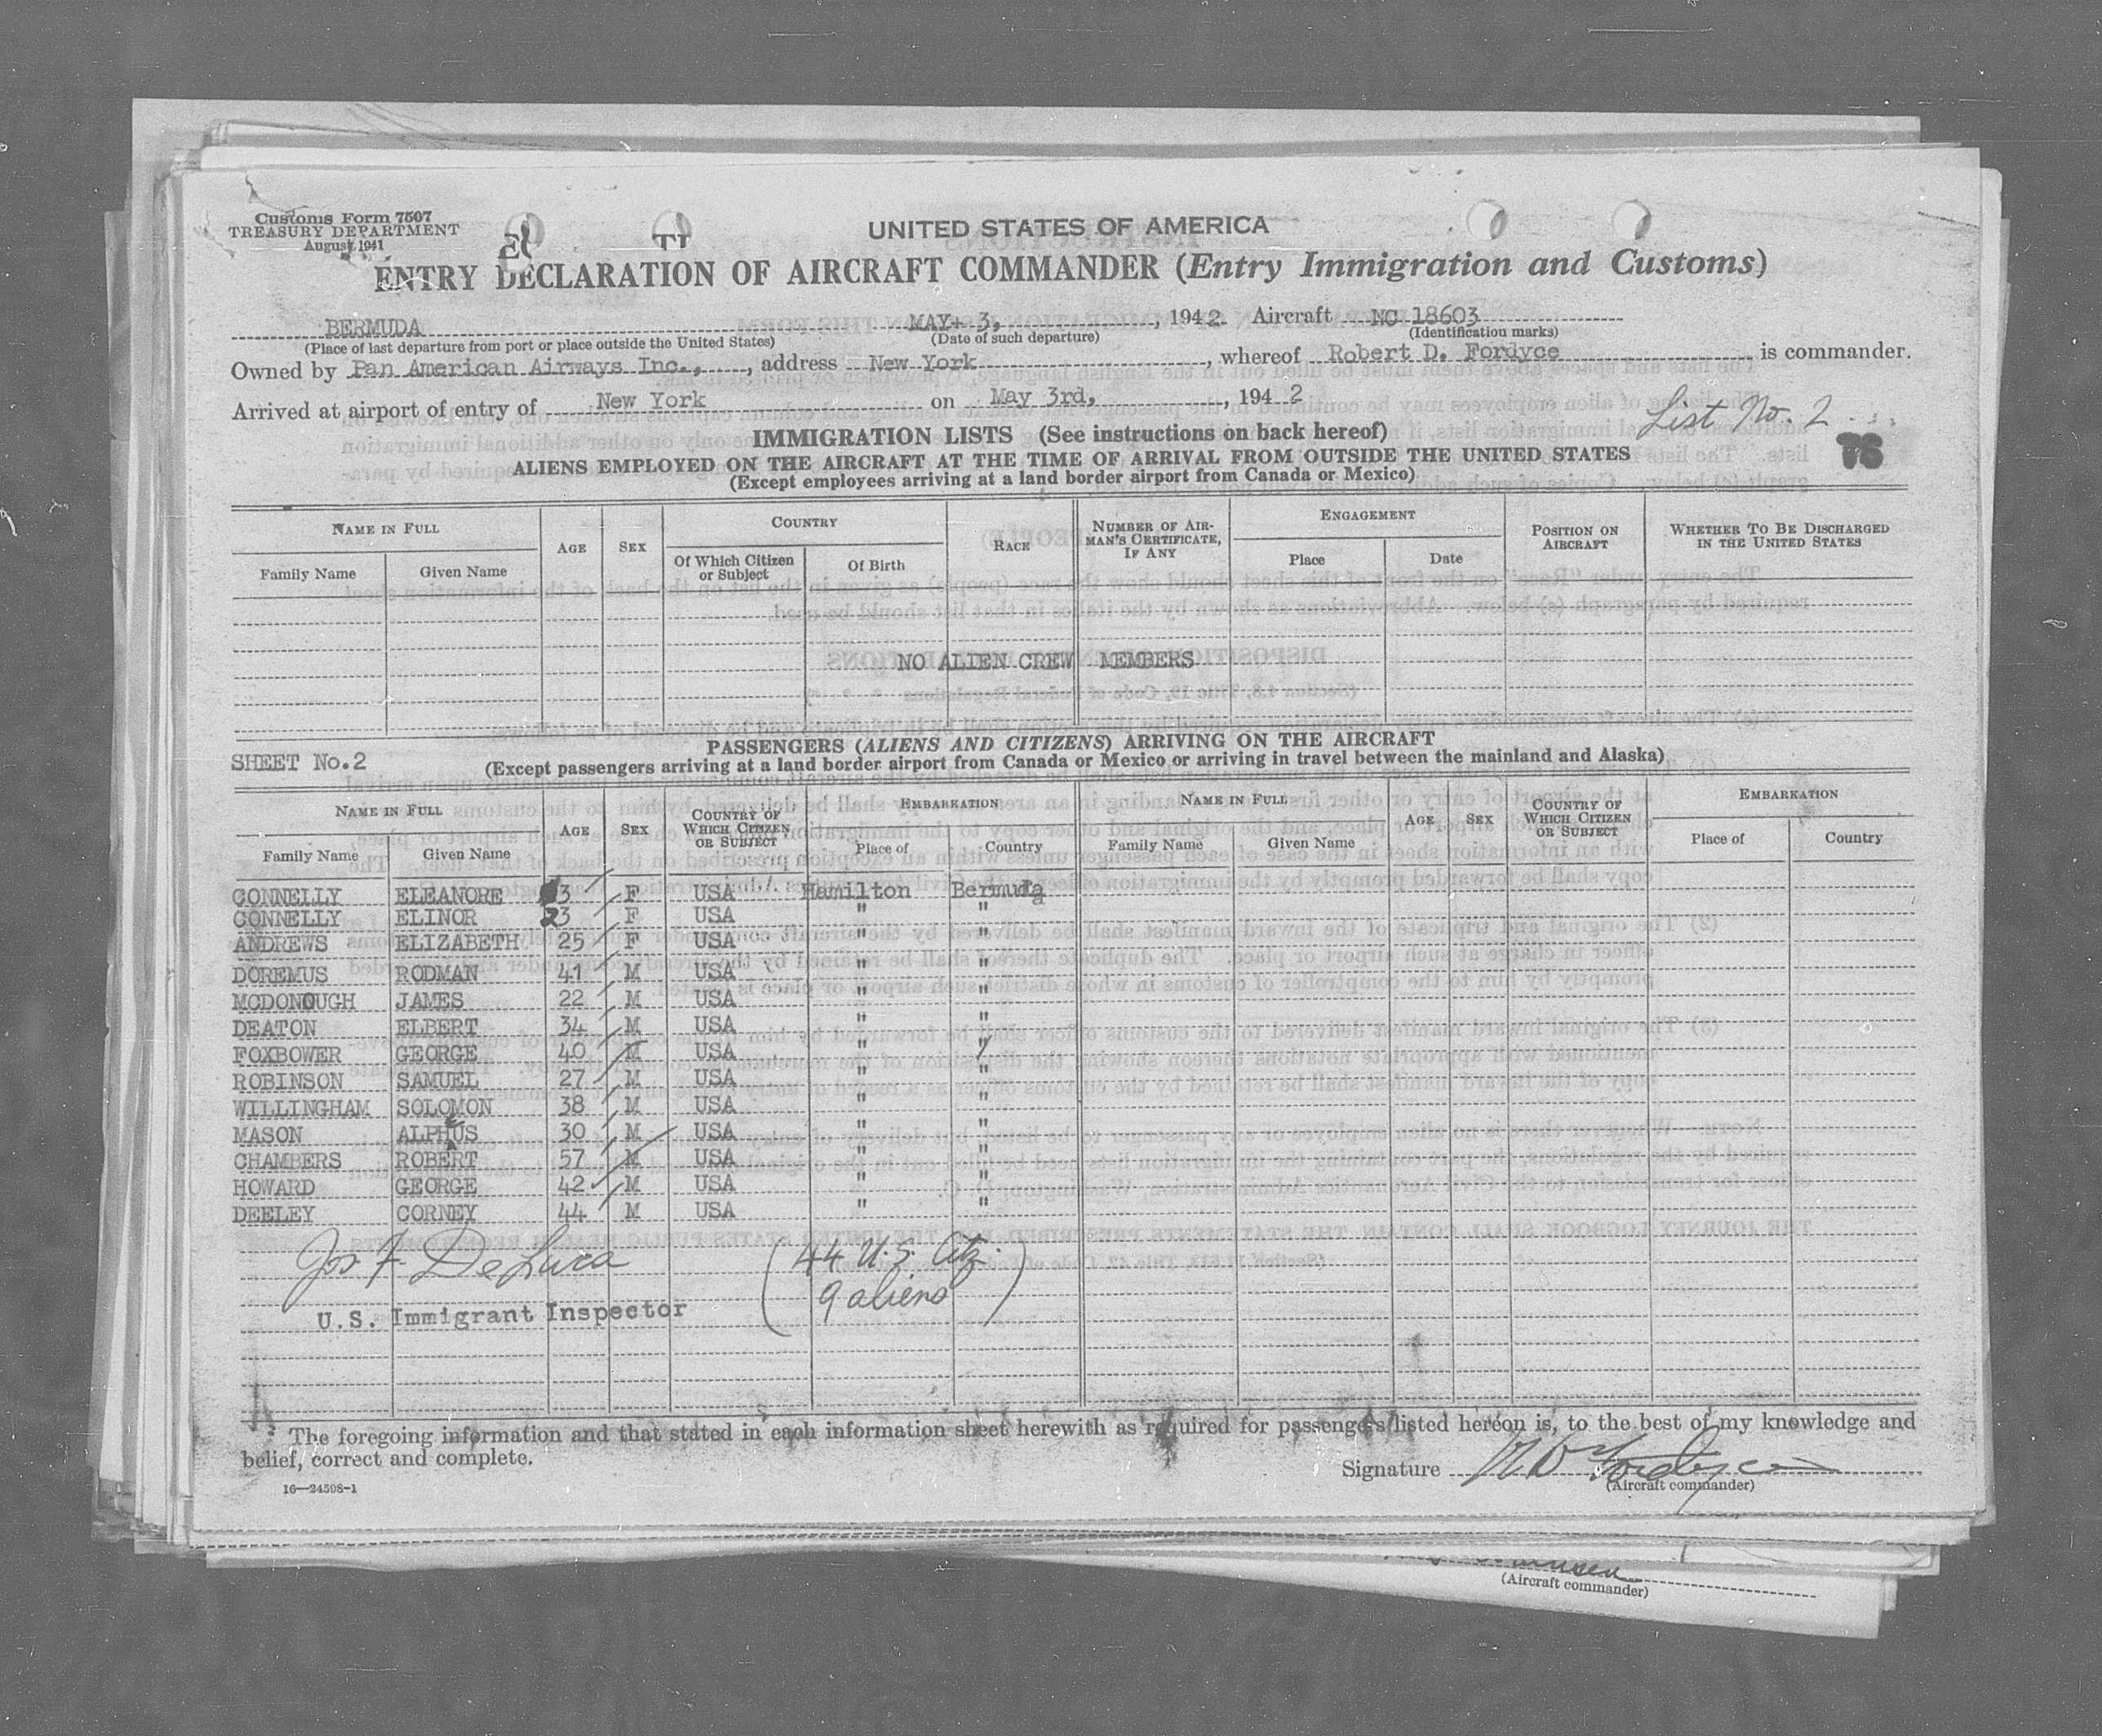 Customs Form 7507
TREASURY DEPARTMENT
August 1941
UNITED STATES OF AMERICA
ENTRY DECLARATION OF AIRCRAFT COMMANDER (Entry Immigration and Customs)
BERMUDA MAY 3, 1942 Aircraft NC 18603
(Place of last departure from port or place outside the United States) (Date of such departure) (Identification marks)
Owned by Pan American Airways Inc., address New York, whereof Robert D. Fordyce is commander.
Arrived at airport of entry of New York on May 3rd, 1942
List No. 2
IMMIGRATION LISTS (See instructions on back hereof)
ALIENS EMPLOYED ON THE AIRCRAFT AT THE TIME OF ARRIVAL FROM OUTSIDE THE UNITED STATES
(Except employees arriving at a land border airport from Canada or Mexico)
NAME IN FULL AGE SEX COUNTRY RACE NUMBER OF AIRMAN'S CERTIFICATE, IF ANY ENGAGEMENT POSITION ON AIRCRAFT WHETHER TO BE DISCHARGED IN THE UNITED STATES
Family Name Given Name Of Which Citizen or Subject Of Birth Place Date
NO ALIEN CREW MEMBERS
SHEET No.2
PASSENGERS (ALIENS AND CITIZENS) ARRIVING ON THE AIRCRAFT
(Except passengers arriving at a land border airport from Canada or Mexico or arriving in travel between the mainland and Alaska)
NAME IN FULL AGE SEX COUNTRY OF WHICH CITIZEN OR SUBJECT EMBARKATION NAME IN FULL AGE SEX COUNTRY OF WHICH CITIZEN OR SUBJECT EMBARKATION
Family Name Given Name Place of Country Family Name Given Name Place of Country
CONNELLY ELEANORE 3 F USA Hamilton Bermuda
CONNELLY ELINOR 23 F USA " "
ANDREWS ELIZABETH 25 F USA " "
DOREMUS RODMAN 41 M USA " "
MCDONOUGH JAMES 22 M USA " "
DEATON ELBERT 34 M USA " "
FOXBOWER GEORGE 40 M USA " "
ROBINSON SAMUEL 27 M USA " "
WILLINGHAM SOLOMON 38 M USA " "
MASON ALPHUS 30 M USA " "
CHAMBERS ROBERT 57 M USA " "
HOWARD GEORGE 42 M USA " "
DEELEY CORNEY 44 M USA " "
Jos F. DeLuca (44 U.S. Citz.
9 aliens)
U.S. Immigrant Inspector
The foregoing information and that stated in each information sheet herewith as required for passengers listed hereon is, to the best of my knowledge and
belief, correct and complete.
Signature R D Fordyce
(Aircraft commander)
16—24598-1
(Aircraft commander)